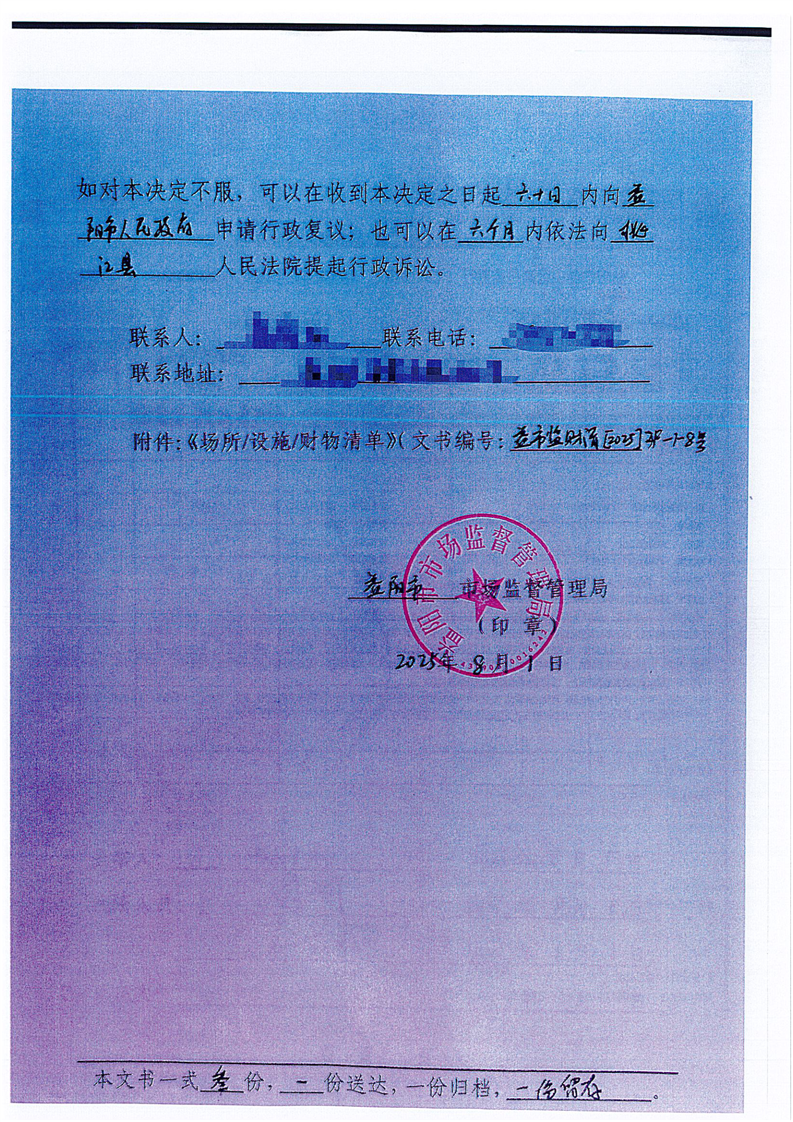 如对本决定不服，可以在收到本决定之日起 六十日 内向 益
阳市人民政府 申请行政复议；也可以在 六个月 内依法向 桃
江县 人民法院提起行政诉讼。
联系人： 联系电话：
联系地址：
附件：《场所/设施/财物清单》（文书编号：益市监财清[2025]3F-1-8号
益阳市市场监督管理局
益阳市 市场监督管理局
（印 章）
2025年 8 月 1 日
本文书一式 叁 份， 一 份送达，一份归档， 一份留存 。